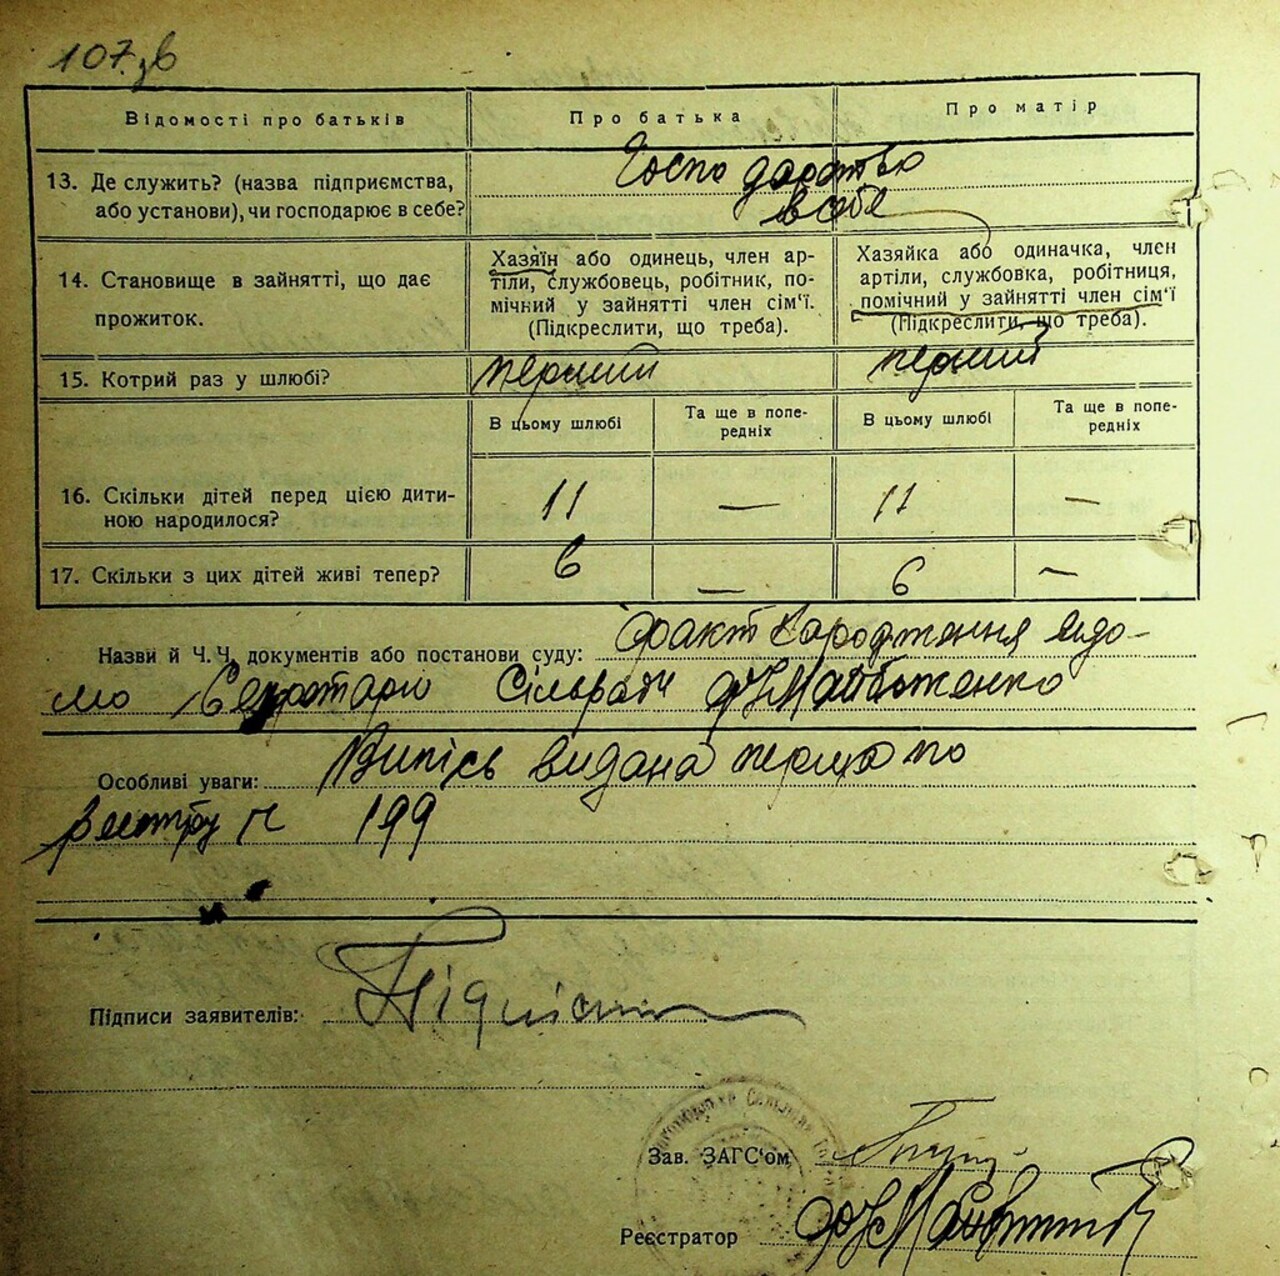 107 зв
Відомості про батьків
Про батька
Про матір
13. Де служить? (назва підприємства,
або установи), чи господарює в себе?
Господарство
в себе
14. Становище в зайнятті, що дає
прожиток.
Хазяїн або одинець, член ар-
тіли, службовець, робітник, по-
мічний у зайнятті член сім'ї.
(Підкреслити, що треба).
Хазяйка або одиначка, член
артіли, службовка, робітниця,
помічний у зайнятті член сім'ї
(Підкреслити, що треба).
15. Котрий раз у шлюбі?
перший
перший
В цьому шлюбі
Та ще в попе-
редніх
В цьому шлюбі
Та ще в попе-
редніх
16. Скільки дітей перед цією дити-
ною народилося?
11
—
11
—
17. Скільки з цих дітей живі тепер?
6
—
6
—
Назви й Ч.Ч. документів або постанови суду: Факт народження відо-
мо Секретарю Сільради
Особливі уваги: Випісь видана перша по
реєстру № 199
Підписи заявителів:
Зав. ЗАГС'ом
Реєстратор